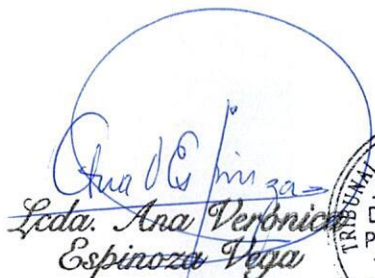 Ana V Espinoza
Lcda. Ana Verónica
Espinoza Vega
TRIBUNAL